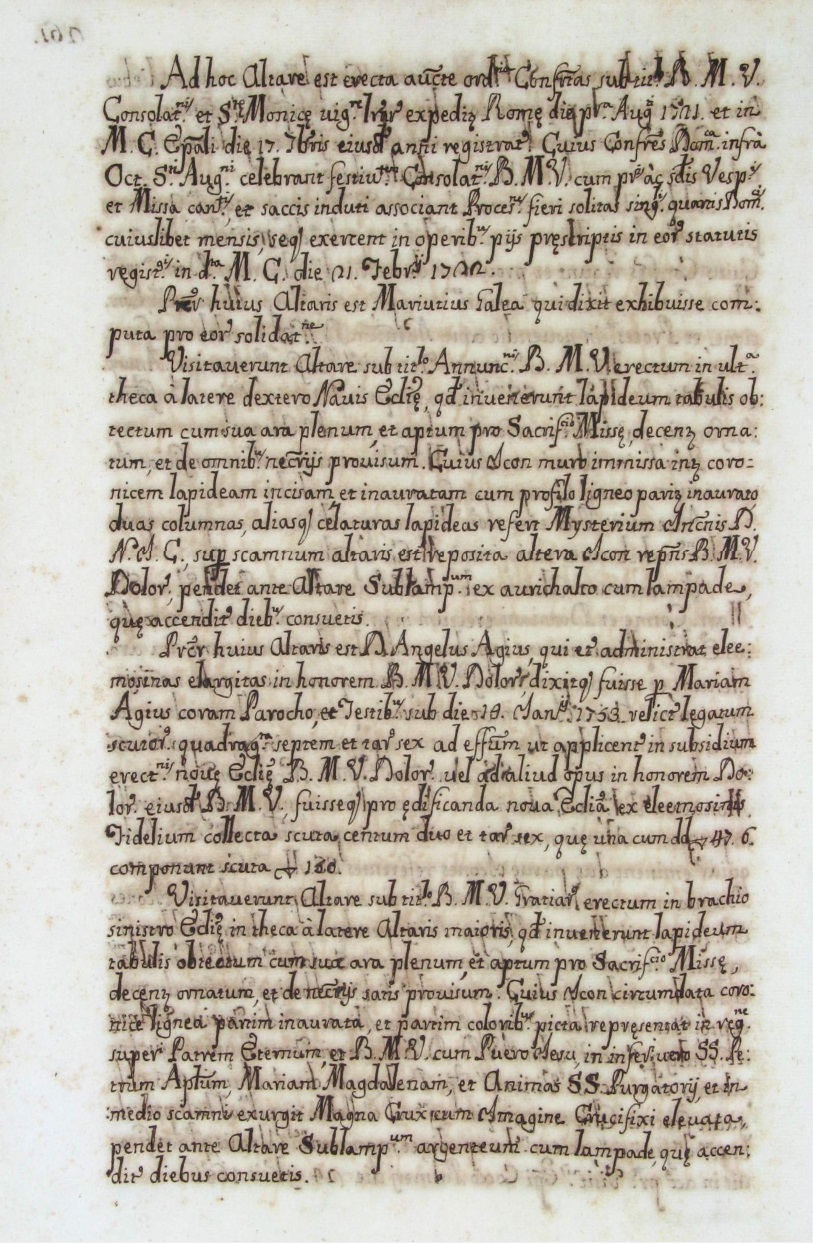 Ad hoc Altare est erecta aucte ord.ria Confr̃tas sub tit.º B. M. V.
Consolat.nis et S.te Monicę vig.re lr̃ar̃ expediz Romę die p.ª Aug.i 1721. et in
M. C. Ep̃ali die 17. 7bris eiusd̃ anni registrat̃ Cuius Confr̃es Dom.ca infrà
Oct. S.ti Aug.ni celebrant festiu.tem Consolat.nis B. M. V. cum pr̃is ac sd̃is Vesp.is
et Missa cant.ta, et saccis induti associant Proces.nes fieri solitas sing.is quartis Dom.cis
cuiuslibet mensis, seq̃ exercent in operib.s pijs pręscriptis in eor̃ statutis
regist.is in d.ta M. C. die 21. Febr.ij 1722.
Pr̃cr̃ huius Altaris est Mariutius Galea qui dixit exhibuisse com:
puta pro eor̃ solidat.ne
Visitauerunt Altare sub tit.º Annunc.nis B. M. V. erectum in ult.ª
theca à latere dextero Nauis Eccl̃ię, qd̃ inuenerunt lapideum tabulis ob:
tectum cum sua ara plenum, et aptum pro Sacrif.cio Missę, decenz orna:
tum, et de omnib.s nec̃rijs prouisum. Cuius Icon muro immissa inz coro:
nicem lapideam incisam, et inauratam cum profilo ligneo pariz inaurato,
duas columnas, aliasq̃ cęlaturas lapideas refert Mysterium Inc̃nis D.
N. I. C., sup̃ scamnum altaris est reposita altera Icon repñs B. M. V.
Dolor̃, pendet ante Altare Sublamp.um ex aurichalco cum lampade,
quę accendit̃ dieb.s consuetis.
Pr̃cr̃ huius Altaris est D. Angelus Agius, qui et administrat elee:
mosinas elargitas in honorem B. M. V. Dolor̃, dixitq̃ fuisse p̃ Mariam
Agius coram Parocho, et Testib.s sub die 18. Ian.ij 1753. relict̃ legatum
scutor̃ quadrag.ta septem et tar̃ sex ad effũm ut applicent̃ in subsidium
erect.nis nouę Eccl̃ię B. M. V. Dolor̃ uel ad aliud opus in honorem Do:
lor̃ eiusd̃ B. M. V., fuisseq̃ pro ędificanda noua Eccl̃ia ex eleemosinis
Fidelium collecta scuta centum duo et tar̃ sex, quę una cum dd. 47. 6.
componunt scuta 150.
Visitauerunt Altare sub tit.º B. M. V. Gratiar̃ erectum in brachio
sinistro Eccl̃ię in theca à latere Altaris maioris, qd̃ inuenerunt lapideum
tabulis obtectum cum sua ara plenum, et aptum pro Sacrif.cio Missę,
decenz ornatum, et de nec̃rijs satis prouisum. Cuius Icon circumdata coro:
nice lignea partim inaurata, et partim colorib.s picta repręsentat in reg.ne
super Patrem Ęternum, et B. M. V. cum Puero Iesu, in infer. uero SS. Pe:
trum Apl̃um, Mariam Magdalenam, et Animas SS. Purgatorij, et in
medio scamni exurgit Magna Crux cum Imagine Crucifixi eleuata,
pendet ante Altare Sublamp.um argenteum cum lampade, quę accen:
dit̃ diebus consuetis.